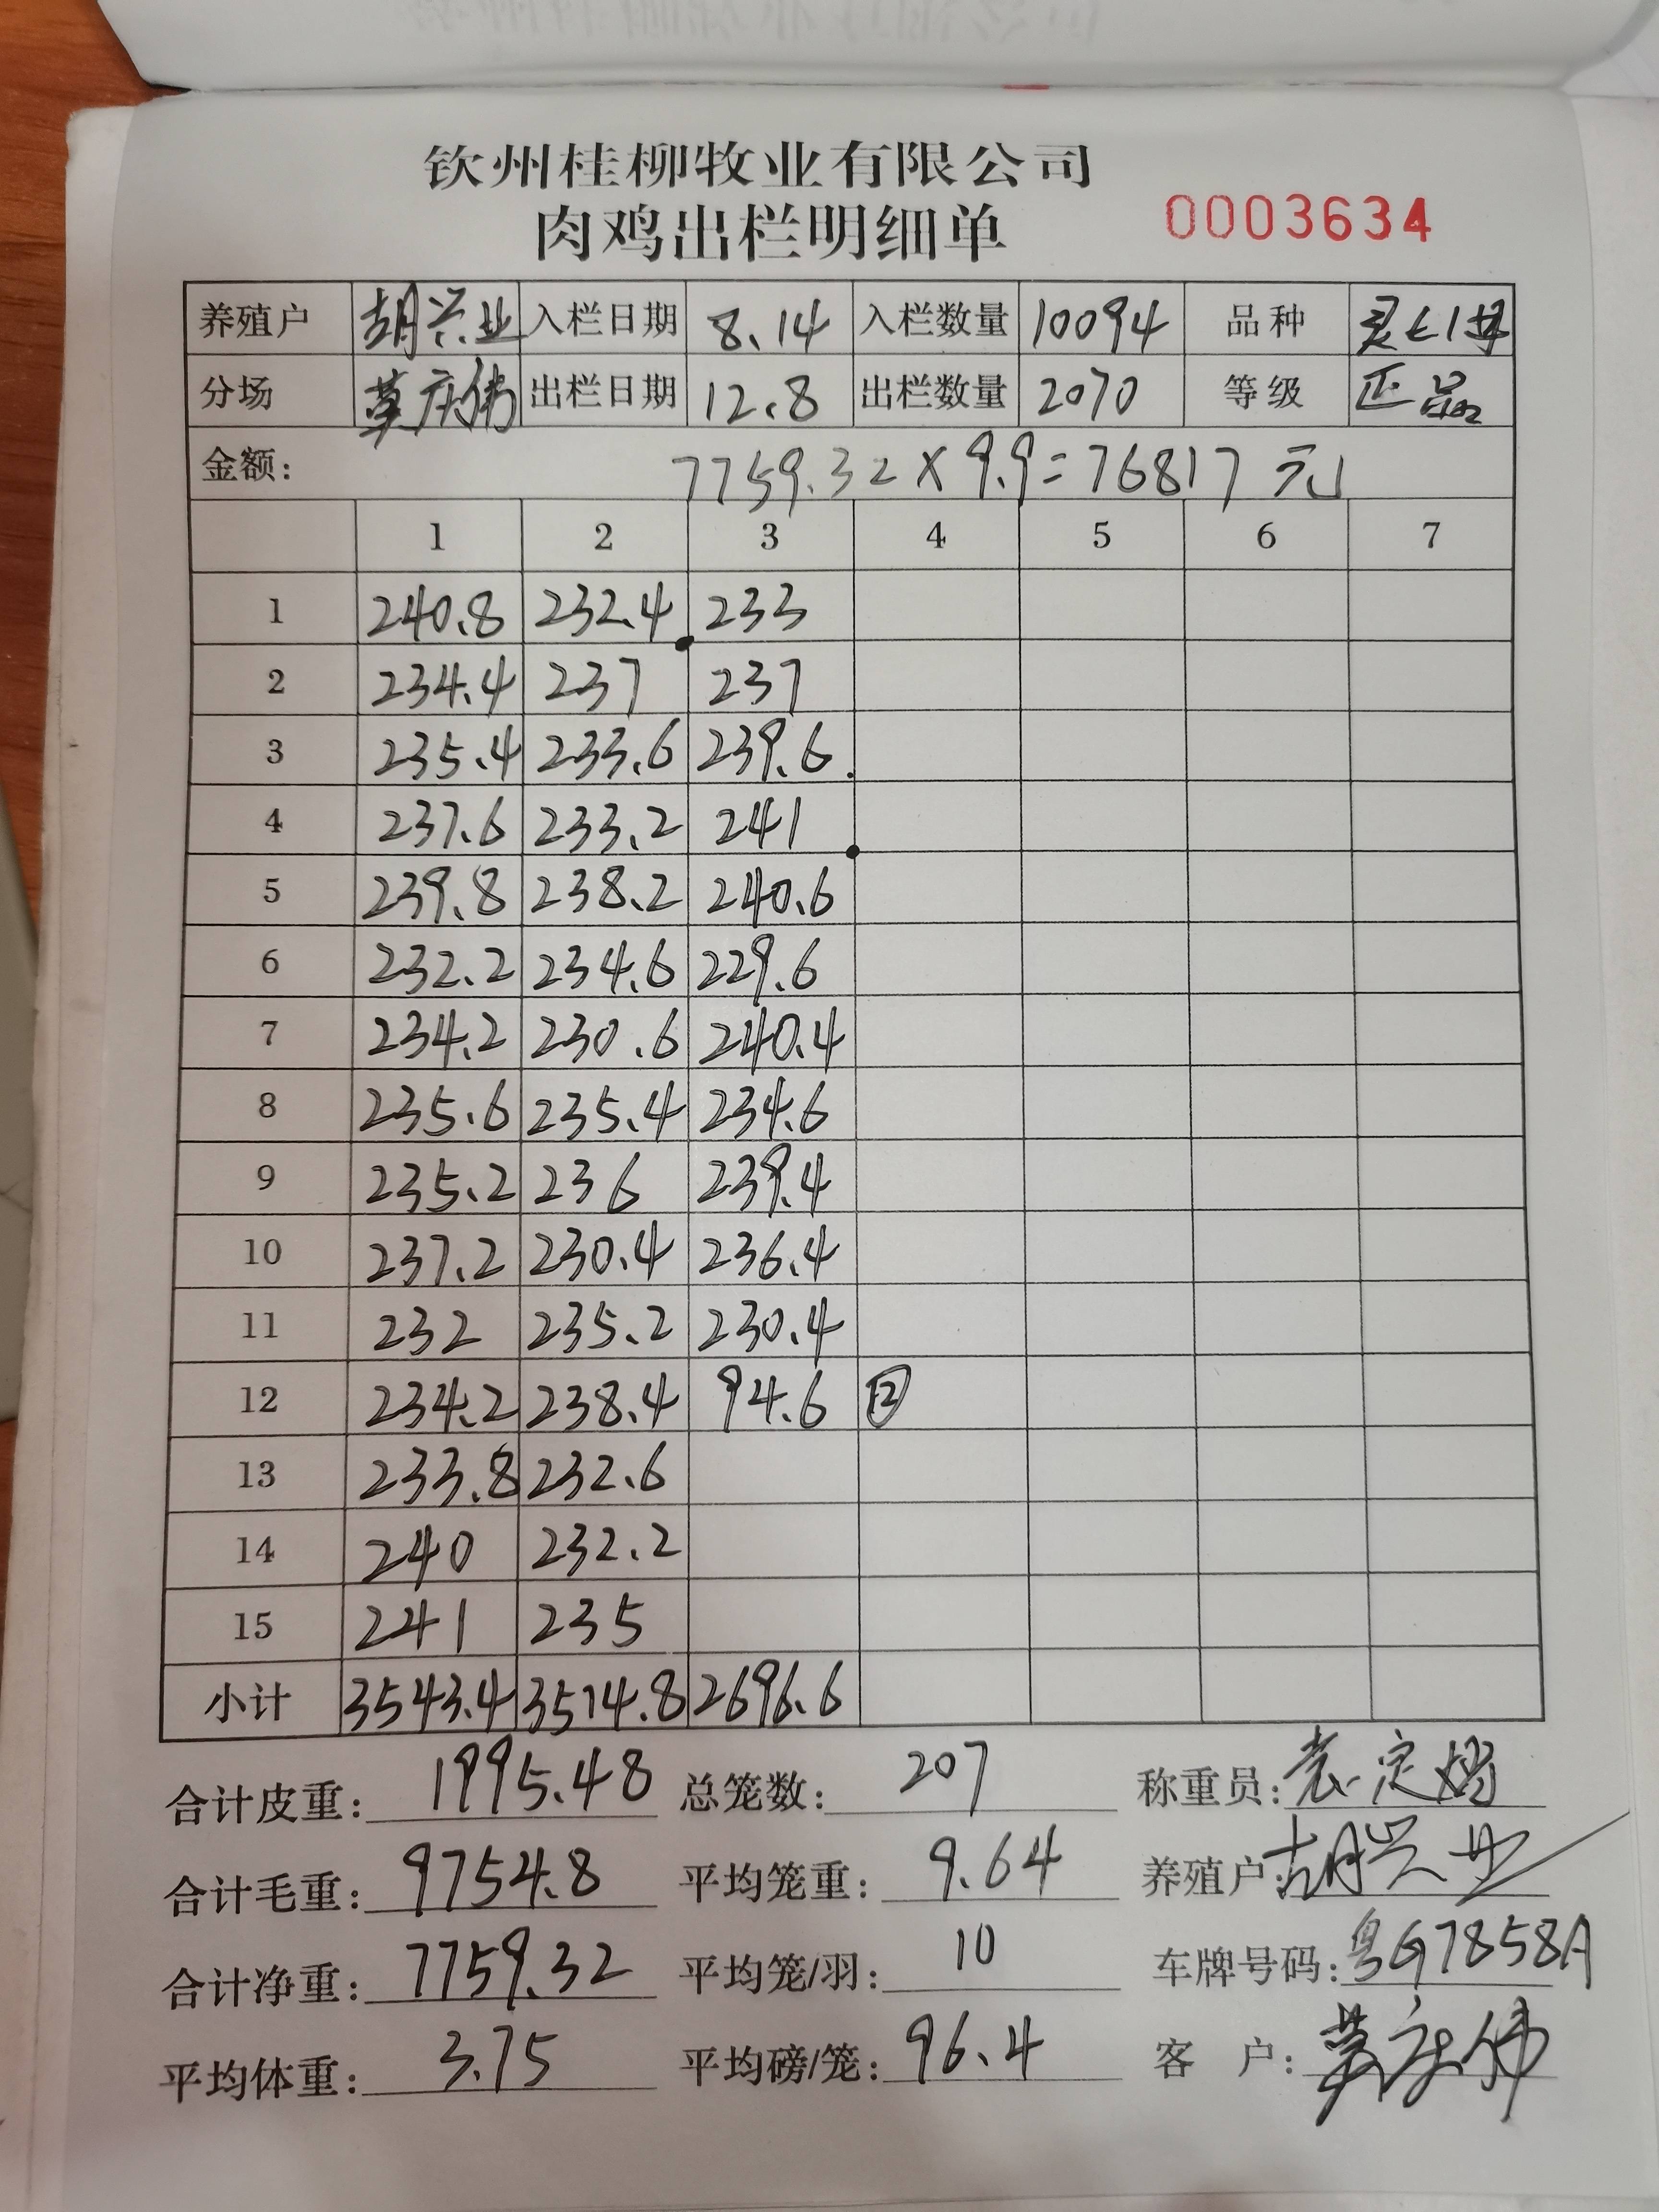 钦州桂柳牧业有限公司
肉鸡出栏明细单 0003634
养殖户 胡兴业 入栏日期 8.14 入栏数量 10094 品种
分场 莫庆伟 出栏日期 12.8 出栏数量 2070 等级 正品
金额: 7759.32×9.9=76817元
1 2 3 4 5 6 7
1 240.8 232.4 233
2 234.4 237 237
3 235.4 233.6 239.6
4 237.6 233.2 241
5 239.8 238.2 240.6
6 232.2 234.6 229.6
7 234.2 230.6 240.4
8 235.6 235.4 234.6
9 235.2 236 239.4
10 237.2 230.4 236.4
11 232 235.2 230.4
12 234.2 238.4 94.6 ②
13 233.8 232.6
14 240 232.2
15 241 235
小计 3543.4 3514.8 2696.6
合计皮重: 1995.48 总笼数: 207 称重员:
合计毛重: 9754.8 平均笼重: 9.64 养殖户: 胡兴业
合计净重: 7759.32 平均笼/羽: 10 车牌号码: 粤G7858A
平均体重: 3.75 平均磅/笼: 96.4 客户: 莫庆伟